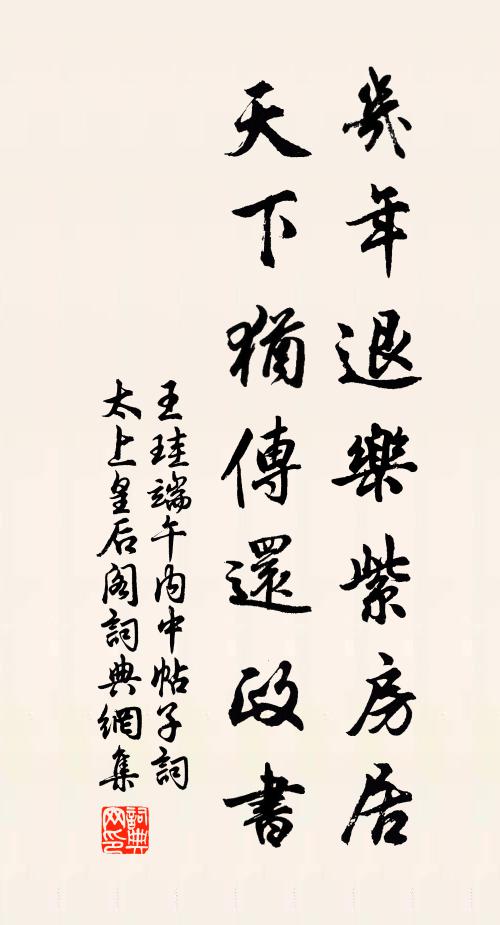 幾年退樂紫房居
天下猶傳還政書
王珪端午內中帖子詞
太上皇后阁詞典網集
詞典網印